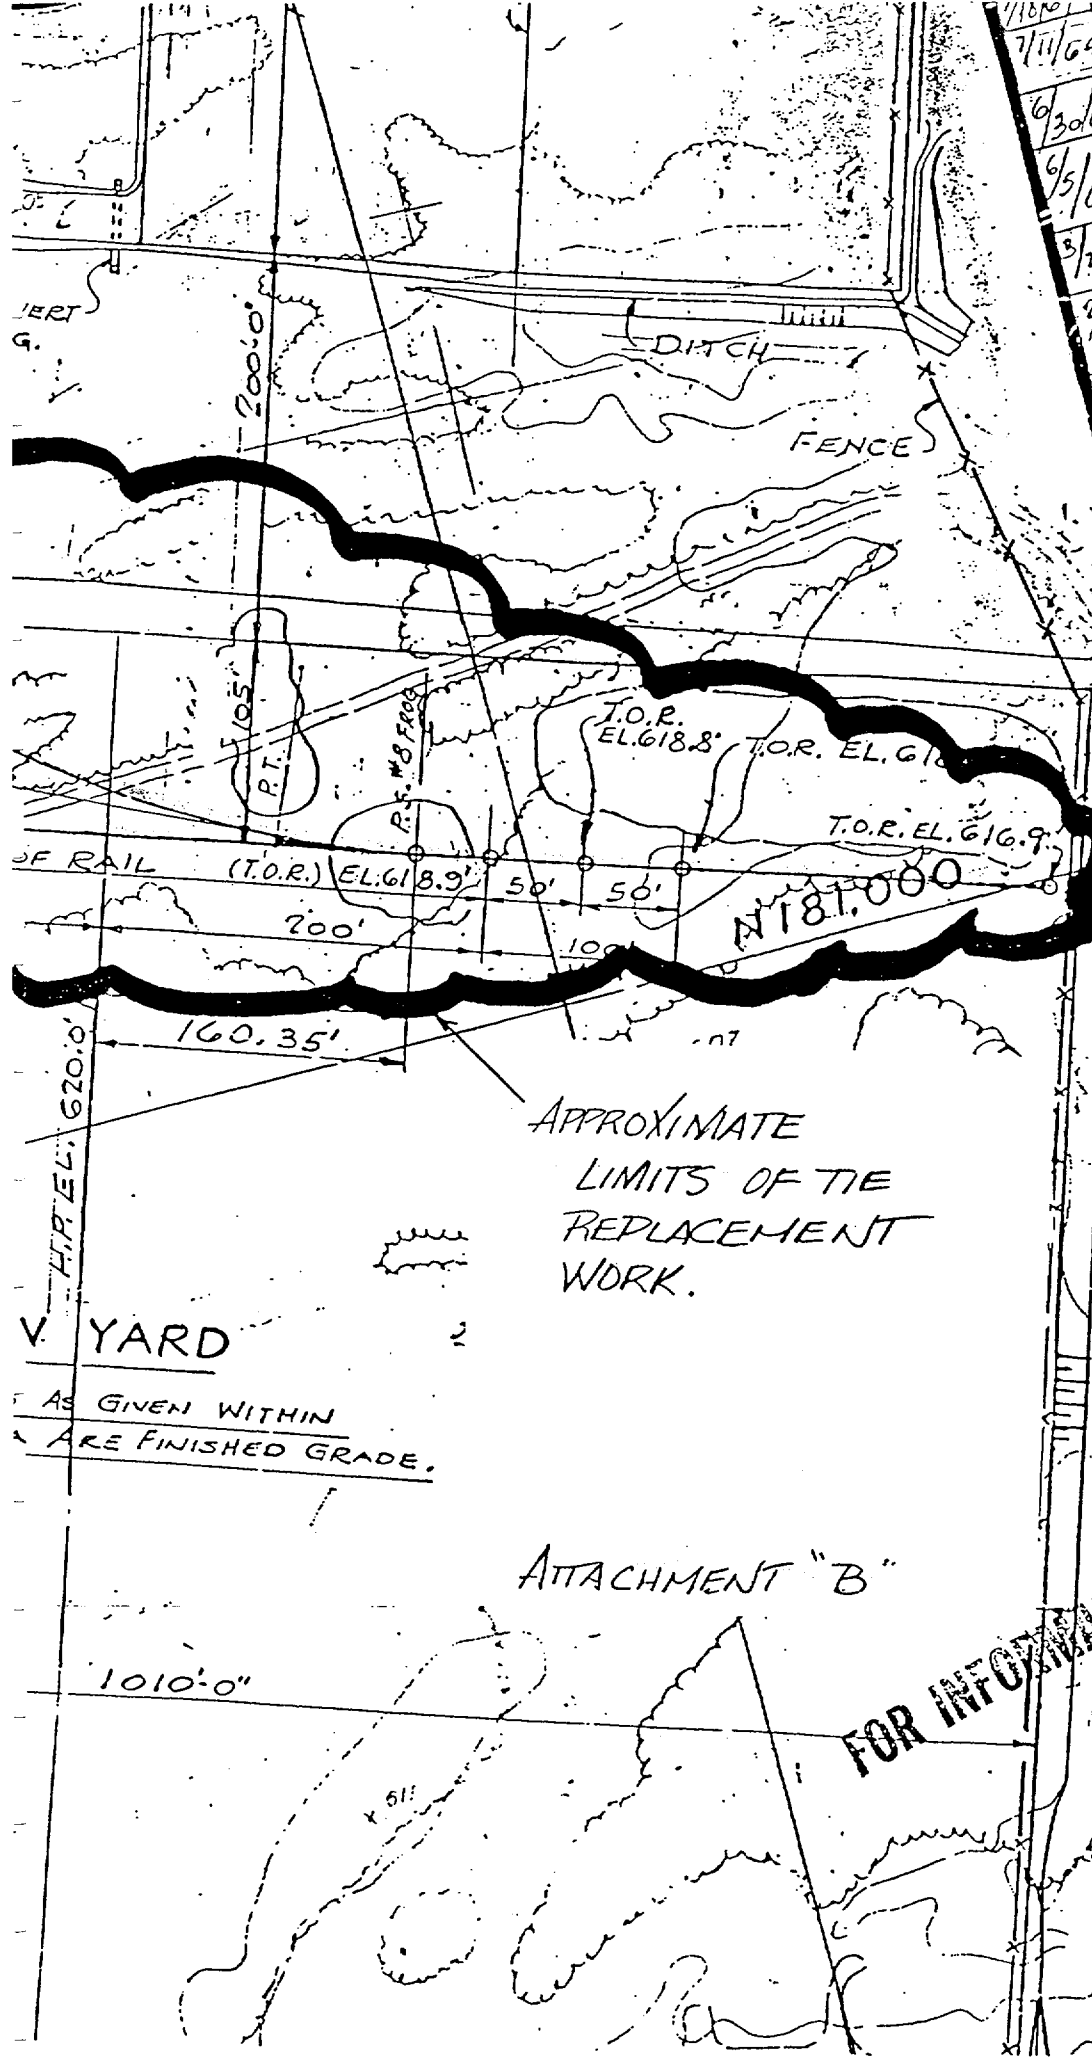 7/11/6
6/30/
6/5/
3/
G.
200'-0"
DITCH
FENCE
105'
P.T.
P.S. #8 FROG
T.O.R.
EL.618.8'
T.O.R. EL. 618
T.O.R. EL. 616.9'
OF RAIL (T.O.R.) EL.618.9'
50'
50'
N181,000
200'
100'
160.35'
H.P. EL. 620.0'
APPROXIMATE
LIMITS OF TIE
REPLACEMENT
WORK.
V. YARD
AS GIVEN WITHIN
ARE FINISHED GRADE.
ATTACHMENT "B"
1010'-0"
FOR INFORMA
x 611